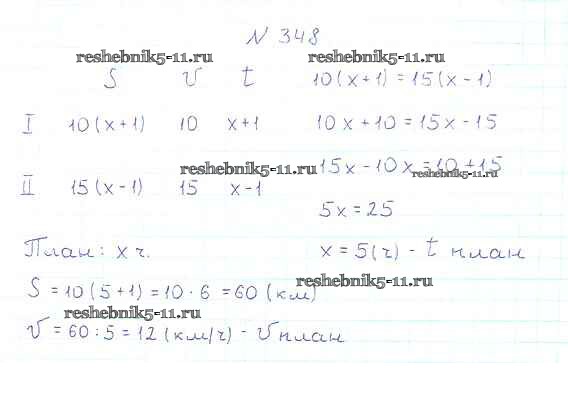 N 348
reshebnik5-11.ru reshebnik5-11.ru
S V t 10(x+1) = 15(x-1)
I 10(x+1) 10 x+1 10x+10 = 15x-15
reshebnik5-11.ru 15x-10x=10+15
reshebnik5-11.ru
II 15(x-1) 15 x-1
5x=25
План: x ч. x = 5(ч) - t план
reshebnik5-11.ru
S = 10(5+1) = 10·6 = 60 (км)
reshebnik5-11.ru
V = 60:5 = 12 (км/ч) - V план